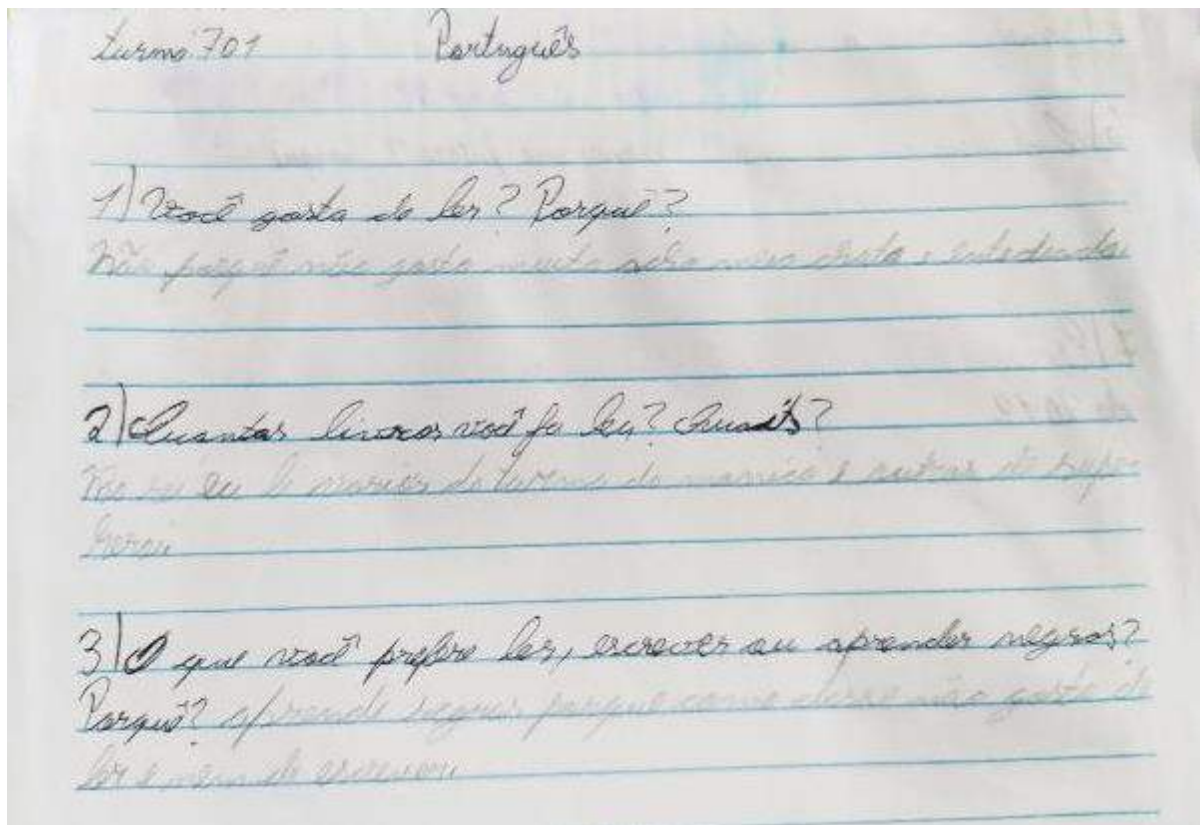 turma: 701 Português
1) Você gosta de ler? Porquê?
Não porquê não gosto muito acho meio chato e
2) Quantos livros você já leu? Quais?
Não sei eu li varios da turma da monica e outros de super
heroi
3) O que você prefere ler, escrever ou aprender regras?
Porquê? aprende regras porque como disse não gosto de
ler e nem de escrever